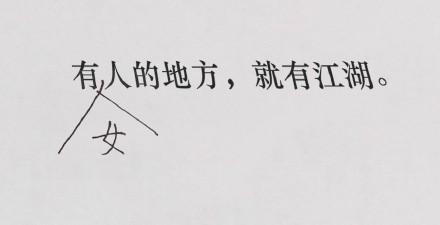 有人的地方，就有江湖。
女